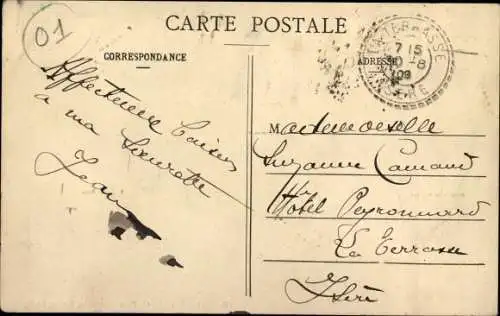 CARTE POSTALE
01
CORRESPONDANCE
ADRESSE
7 15
-8
09
ISÈRE
Affectueux baisers
à ma Soeurette
Jean
Mademoiselle
Suzanne Camand
Hôtel Peyronnard
La Terrasse
Isère